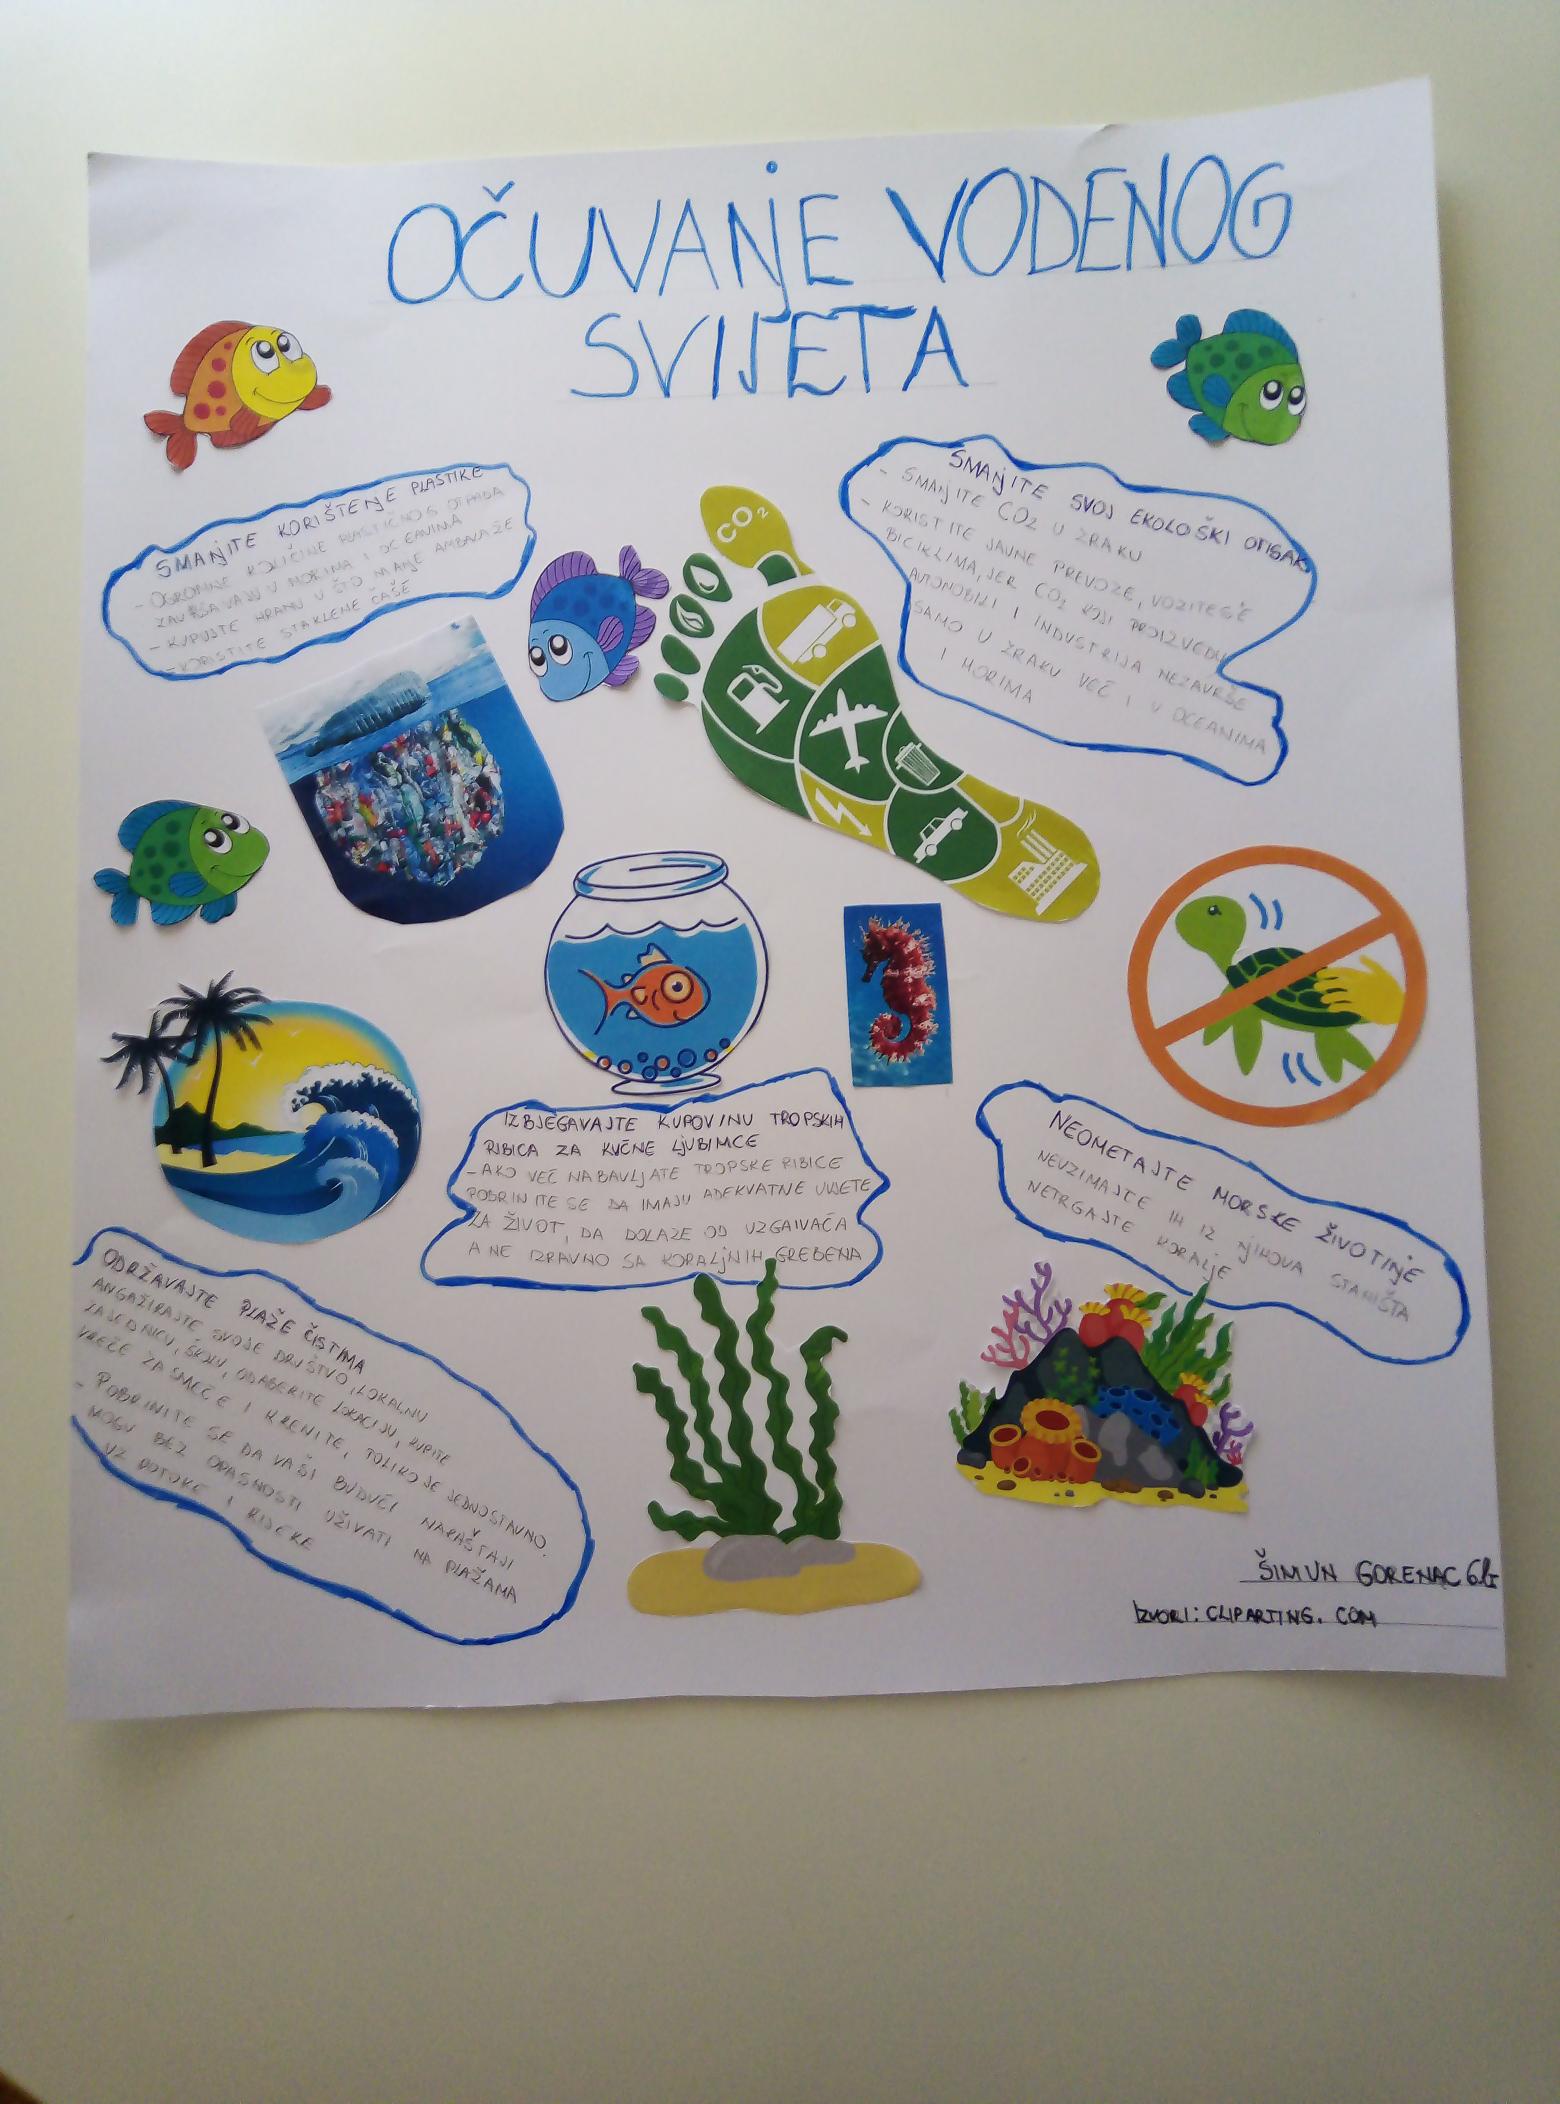 OČUVANJE VODENOG
SVIJETA
SMANJITE KORIŠTENJE PLASTIKE
- OGROMNE KOLIČINE PLASTIČNOG OTPADA
ZAVRŠAVAJU U MORIMA I OCEANIMA
- KUPUJTE HRANU U ŠTO MANJE AMBALAŽE
- KORISTITE STAKLENE ČAŠE
CO2
SMANJITE SVOJ EKOLOŠKI OTISAK
- SMANJITE CO2 U ZRAKU
- KORISTITE JAVNE PREVOZE, VOZITE SE
BICIKLIMA, JER CO2 KOJI PROIZVEDU
AUTOMOBILI I INDUSTRIJA NEZAVRŠE
SAMO U ZRAKU VEĆ I U OCEANIMA
I MORIMA
IZBJEGAVAJTE KUPOVINU TROPSKIH
RIBICA ZA KUĆNE LJUBIMCE
- AKO VEĆ NABAVLJATE TROPSKE RIBICE
POBRINITE SE DA IMAJU ADEKVATNE UVJETE
ZA ŽIVOT, DA DOLAZE OD UZGAIVAČA
A NE IZRAVNO SA KORALJNIH GREBENA
NEOMETAJTE MORSKE ŽIVOTINJE
NEUZIMAJTE IH IZ NJIHOVA STANIŠTA
NETRGAJTE KORALJE
ODRŽAVAJTE PLAŽE ČISTIMA
ANGAŽIRAJTE SVOJE DRUŠTVO, LOKALNU
ZAJEDNICU, ŠKOLU, ODABERITE LOKACIJU, KUPITE
VREĆE ZA SMEĆE I KRENITE, TOLIKO JE JEDNOSTAVNO.
- POBRINITE SE DA VAŠI BUDUĆI NARAŠTAJI
MOGU BEZ OPASNOSTI UŽIVATI NA PLAŽAMA
UZ POTOKE I RIJEKE
ŠIMUN GORENAC
IZVORI: CLIPARTING.COM